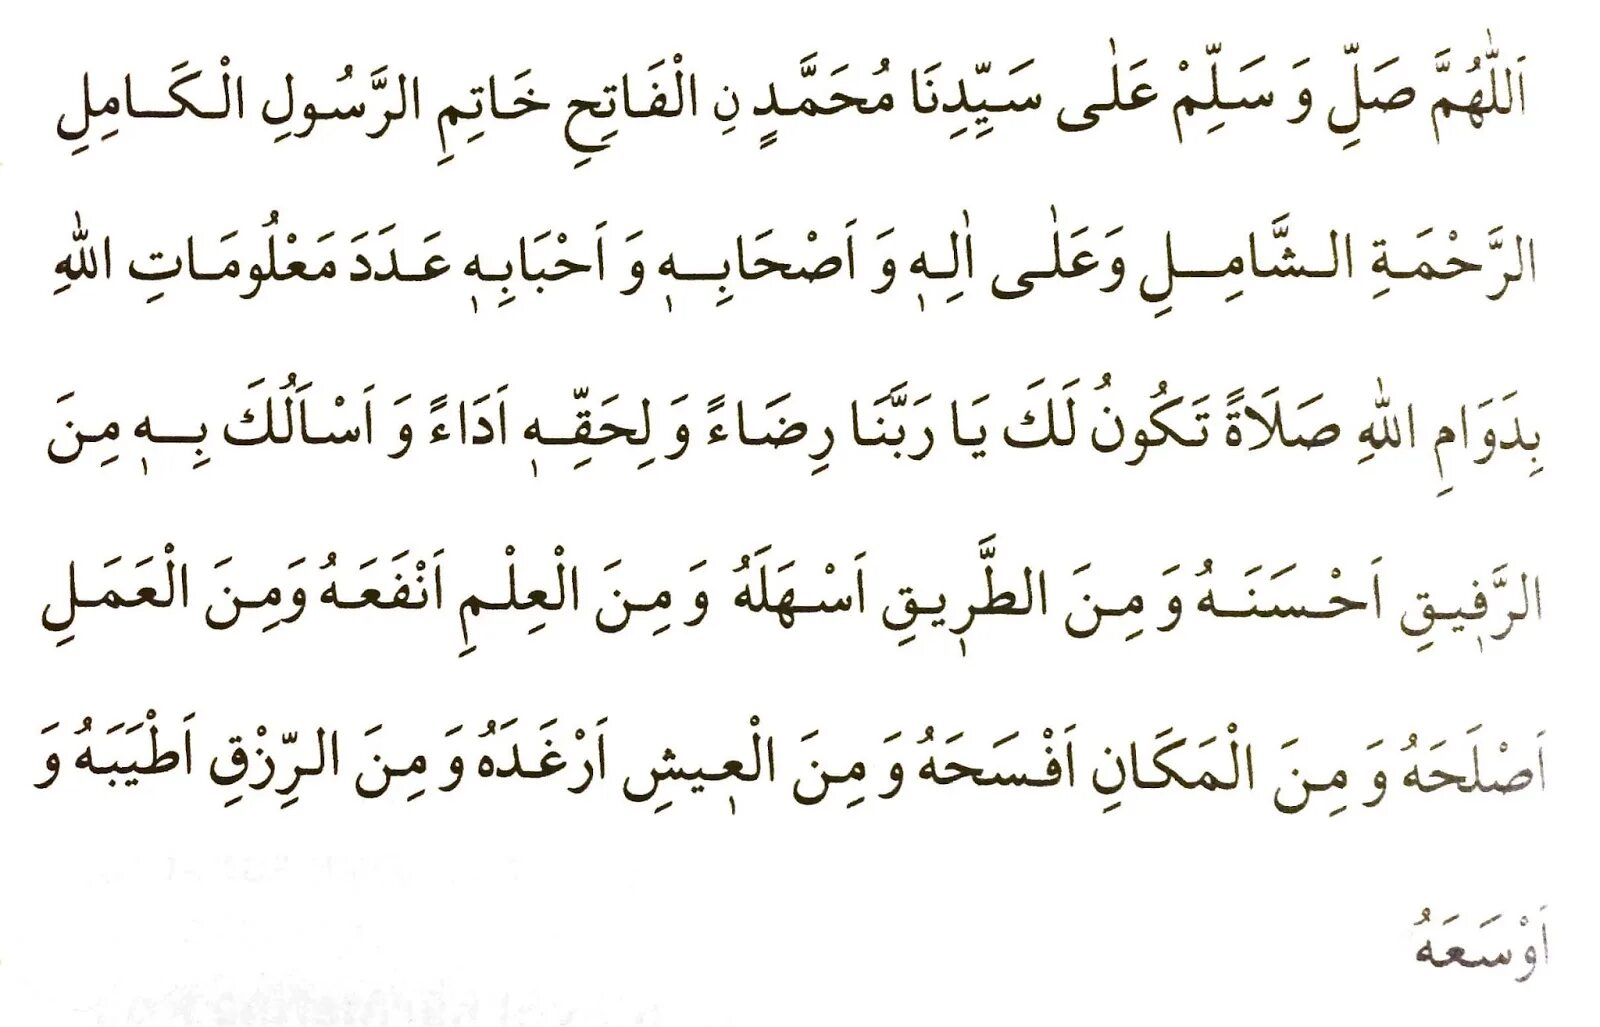 اَللّٰهُمَّ صَلِّ وَ سَلِّمْ عَلٰى سَيِّدِنَا مُحَمَّدٍ نِ الْفَاتِحِ خَاتِمِ الرَّسُولِ الْكَامِلِ
الرَّحْمَةِ الشَّامِلِ وَعَلٰى اٰلِهٖ وَ اَصْحَابِهٖ وَ اَحْبَابِهٖ عَدَدَ مَعْلُومَاتِ اللّٰهِ
بِدَوَامِ اللّٰهِ صَلَاةً تَكُونُ لَكَ يَا رَبَّنَا رِضَاءً وَ لِحَقِّهٖ اَدَاءً وَ اَسْاَلُكَ بِهٖ مِنَ
الرَّفٖيقِ اَحْسَنَهُ وَ مِنَ الطَّرٖيقِ اَسْهَلَهُ وَ مِنَ الْعِلْمِ اَنْفَعَهُ وَمِنَ الْعَمَلِ
اَصْلَحَهُ وَ مِنَ الْمَكَانِ اَفْسَحَهُ وَ مِنَ الْعٖيشِ اَرْغَدَهُ وَ مِنَ الرِّزْقِ اَطْيَبَهُ وَ
اَوْسَعَهُ